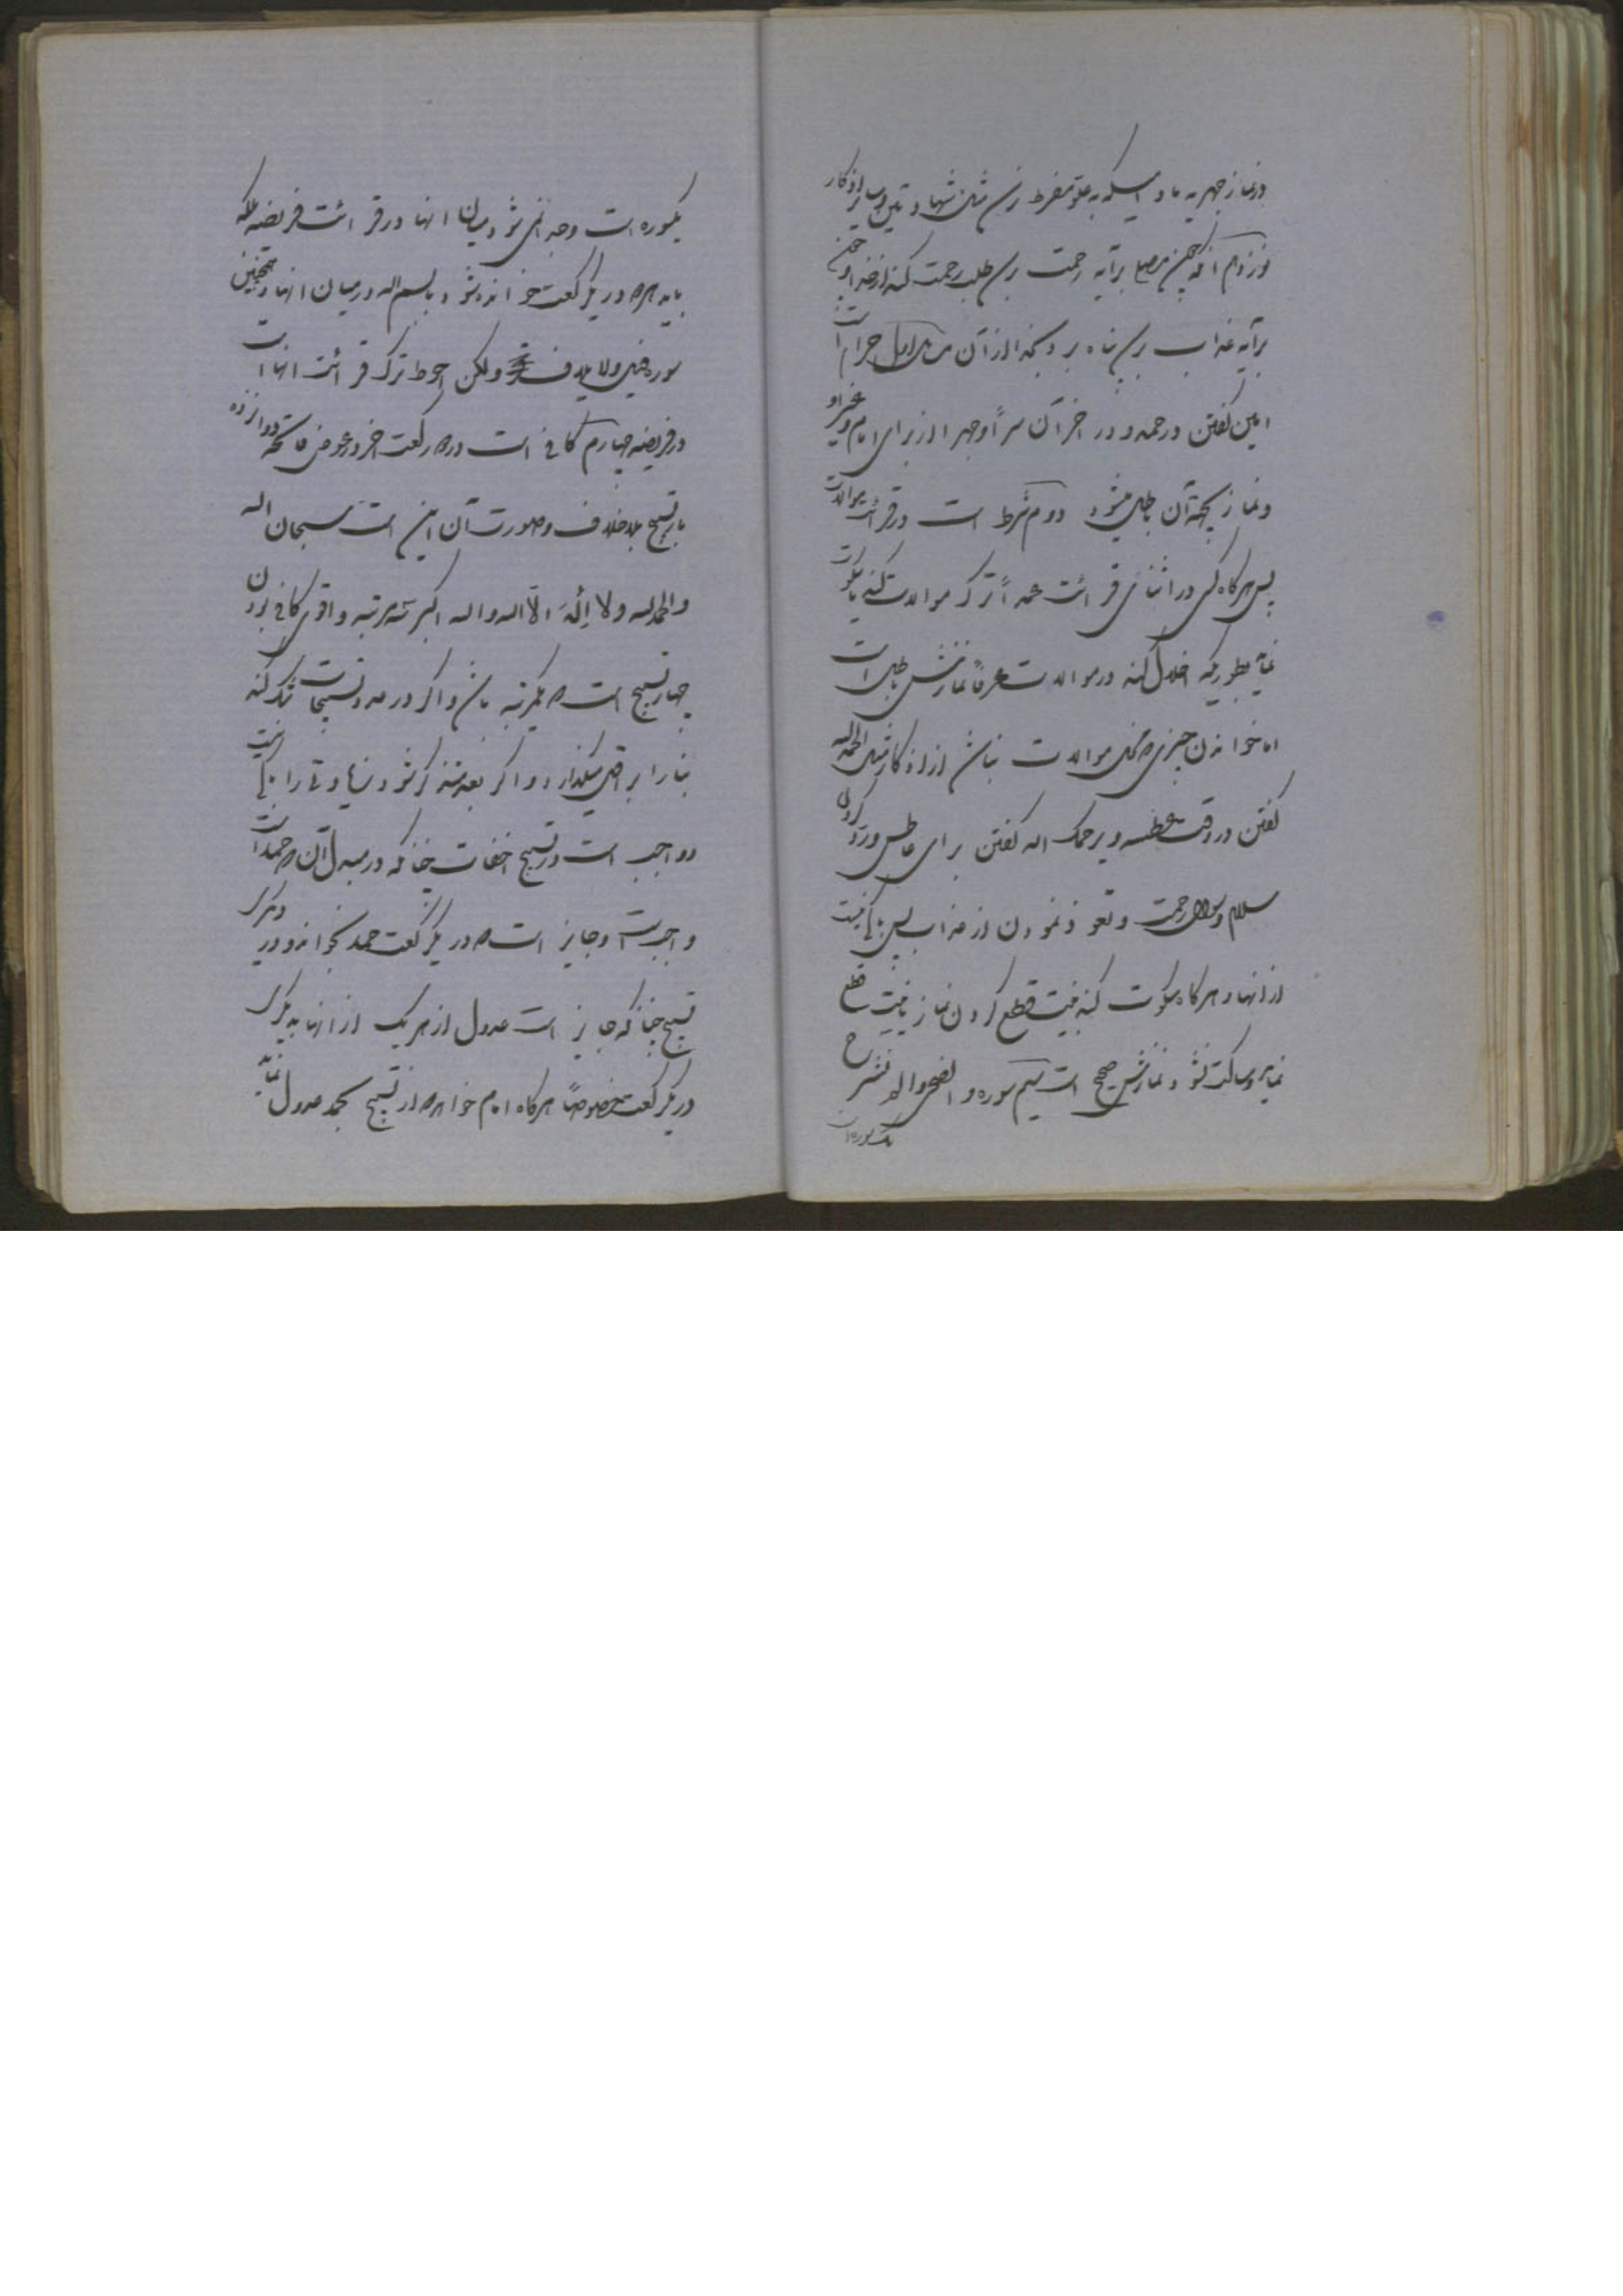 در نماز جهریه مادامیکه بعلو مفرط نرسد مثل شهادتین و سایر اذکار
نوزدهم آنکه چون مصلی برآیه رحمت رسد طلب رحمت کند از خدا و چون
برآیه عذاب رسد پناه برد بخدا از آن حرام است
امین گفتن در حمد و در اخر آن سراً و جهراً از برای امام و غیر او
و نماز بجهة آن باطل میشود دوم شرط است در قرائت موالات
پس هرگاه کسی در اثنای قرائت عمداً ترک موالات کند یا سکوت
نماید بطوریکه اخلال کند در موالات عرفاً نمازش باطل است
اما خواندن چیزی که مخل موالات نباشد از اذکار مثل الحمدلله
گفتن در وقت عطسه و یرحمک الله گفتن برای عاطس و رد کردن
سلام و سؤال رحمت و تعوذ نمودن از عذاب پس باکی نیست
از انها و هرگاه سکوت کند به نیت قطع کردن نماز یا نیت قطع
نماید و ساکت نشود نمازش صحیح است سیم سوره والضحی و الم نشرح
یک سوره است
یکسوره است وجدائی نمی شود میان انها در قرائت فریضه بلکه
باید هر دو در یک رکعت خوانده شود با بسم الله در میان انها و همچنین
سوره فیل و لایلاف ولکن احوط ترک قرائت انها است
در فریضه چهارم کافی است در دو رکعت اخر در عوض فاتحه دوازده
بار تسبیح بلاخلاف و صورت آن این است سبحان الله
والحمدلله ولا اله الا الله والله اکبر سه مرتبه و اقوی کافی بودن
چهار تسبیح است که یکمرتبه باشد و اگر در عدد تسبیحات شک کند
بنا را بر اقل میگذارد و اگر بعد متذکر شود زیادتی را باکی نیست
و واجب است در تسبیح اخفات چنانکه در مبدل آن که حمد است
واجبست و جایز است که در یک رکعت حمد بخواند و در دیگری
تسبیح چنانکه جایز است عدول از هر یک از انها بدیگری
در یک رکعت خصوصاً هرگاه امام خواهد از تسبیح بحمد عدول نماید